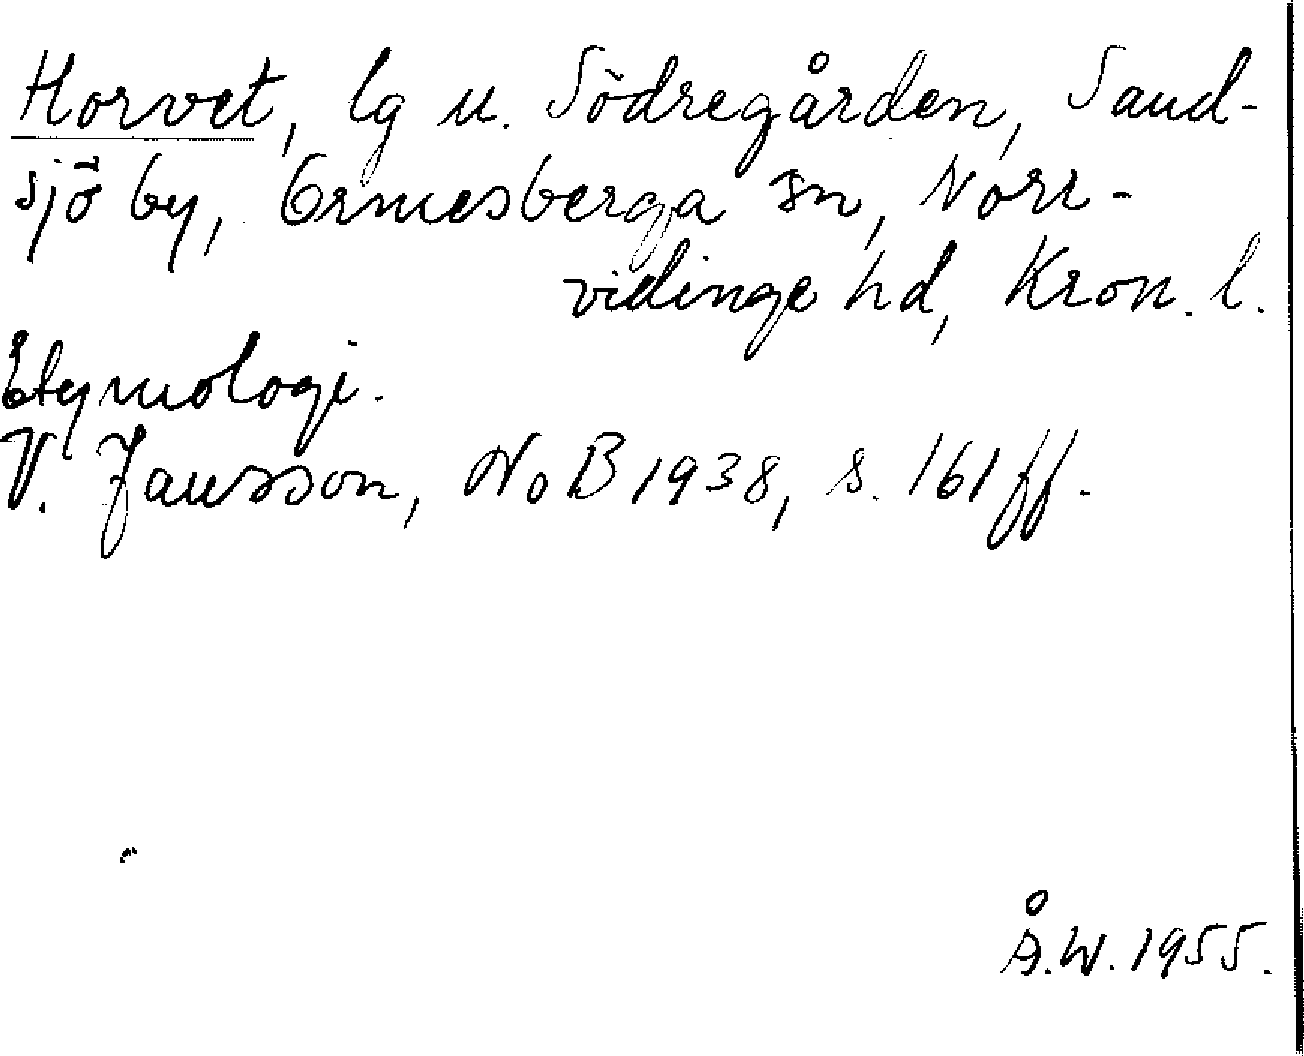 Horvet, lg u. Södregården, Sand-
sjö by, Ormesberga sn, Norr-
vidinge hd, Kron. l.
Etymologi.
V. Jansson, NoB 1938, s. 161 ff.
Å.W. 1955.